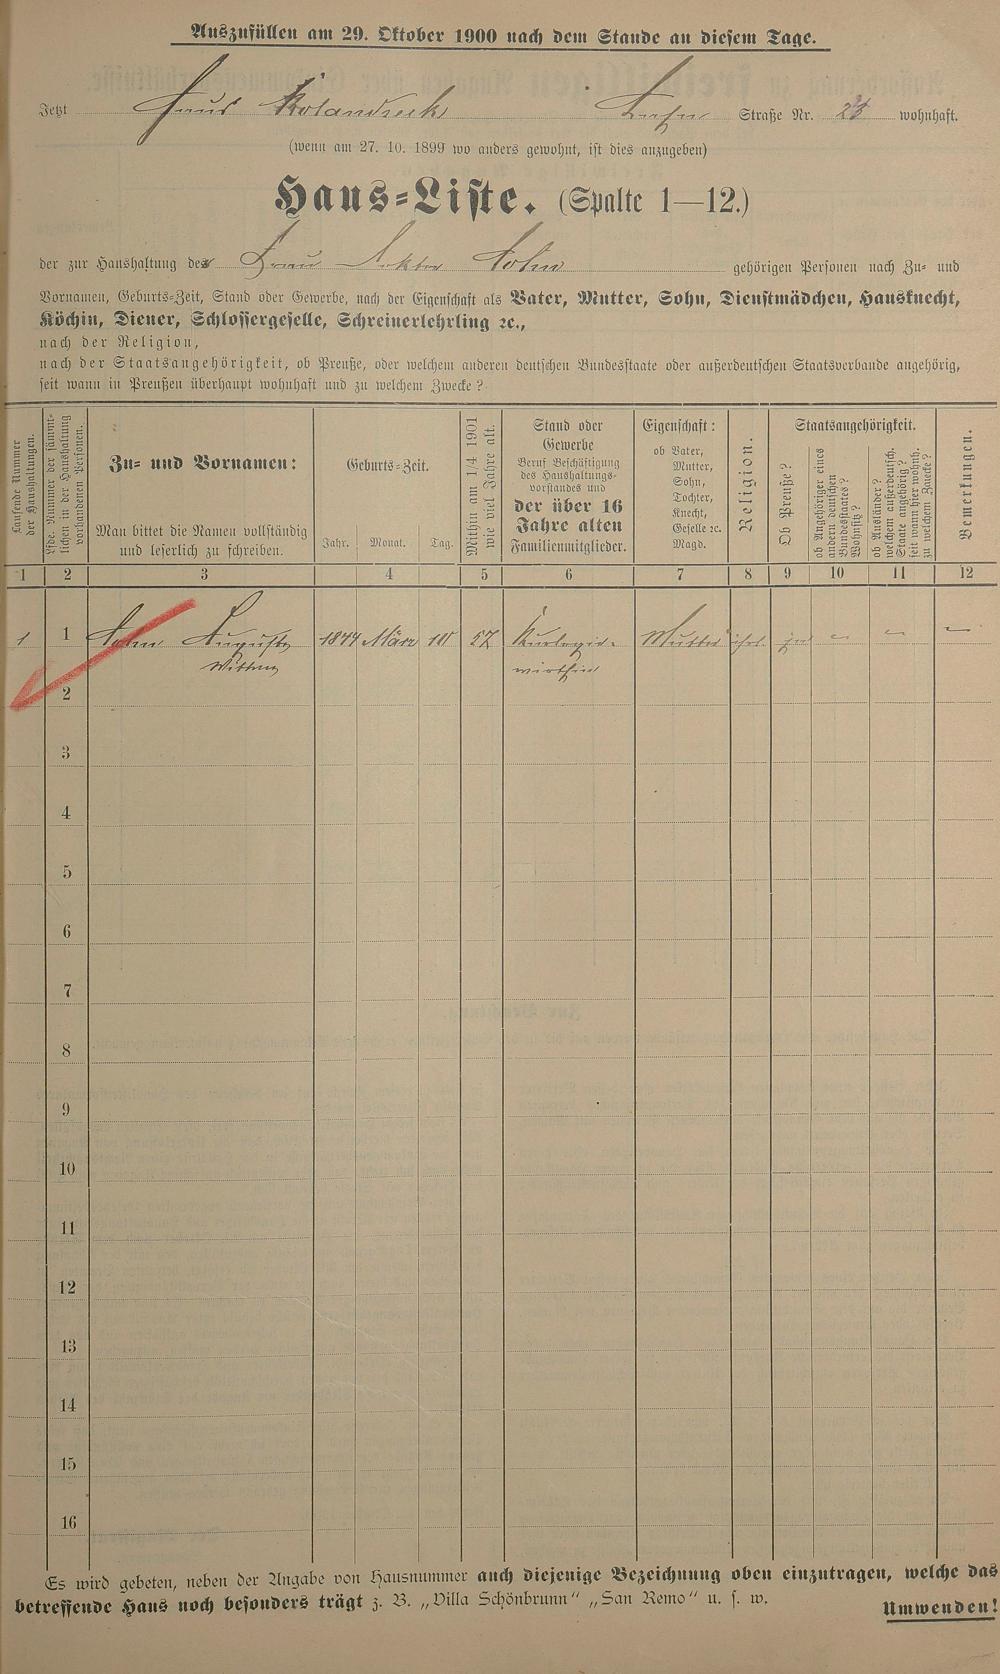 Auszufüllen am 29. Oktober 1900 nach dem Stande an diesem Tage.
Jetzt Haus Rolandseck Straße Nr. 23 wohnhaft.
(wenn am 27. 10. 1899 wo anders gewohnt, ist dies anzugeben)
Haus-Liste. (Spalte 1—12.)
der zur Haushaltung der Frau Doktor Hohn gehörigen Personen nach Zu- und
Vornamen, Geburts-Zeit, Stand oder Gewerbe, nach der Eigenschaft als Vater, Mutter, Sohn, Dienstmädchen, Hausknecht,
Köchin, Diener, Schlossergeselle, Schreinerlehrling ꝛc.,
nach der Religion,
nach der Staatsangehörigkeit, ob Preuße, oder welchem anderen deutschen Bundesstaate oder außerdeutschen Staatsverbande angehörig,
seit wann in Preußen überhaupt wohnhaft und zu welchem Zwecke?
Laufende Nummer
der Haushaltungen.
Lfde. Nummer der sämmt-
lichen in der Haushaltung
vorhandenen Personen.
Zu- und Vornamen:
Man bittet die Namen vollständig
und leserlich zu schreiben.
Geburts-Zeit.
Jahr. Monat. Tag.
Mithin am 1/4 1901
wie viel Jahre alt.
Stand oder
Gewerbe
Beruf Beschäftigung
des Haushaltungs-
vorstandes und
der über 16
Jahre alten
Familienmitglieder.
Eigenschaft:
ob Vater,
Mutter,
Sohn,
Tochter,
Knecht,
Geselle ꝛc.
Magd.
Religion.
Staatsangehörigkeit.
Ob Preuße?
ob Angehöriger eines
andern deutschen
Bundesstaates?
Wohnsitz?
ob Ausländer?
welchem außerdeutsch.
Staate angehörig?
seit wann hier wohnh.
zu welchem Zwecke?
Bemerkungen.
1 2 3 4 5 6 7 8 9 10 11 12
1 1 Hohn Auguste 1844 März 18 57 Kurlogir- Mutter isrl. ja — — —
Wittwe wirthin
2
3
4
5
6
7
8
9
10
11
12
13
14
15
16
Es wird gebeten, neben der Angabe von Hausnummer auch diejenige Bezeichnung oben einzutragen, welche das
betreffende Haus noch besonders trägt z. B. „Villa Schönbrunn“ „San Remo“ u. s. w.
Umwenden!